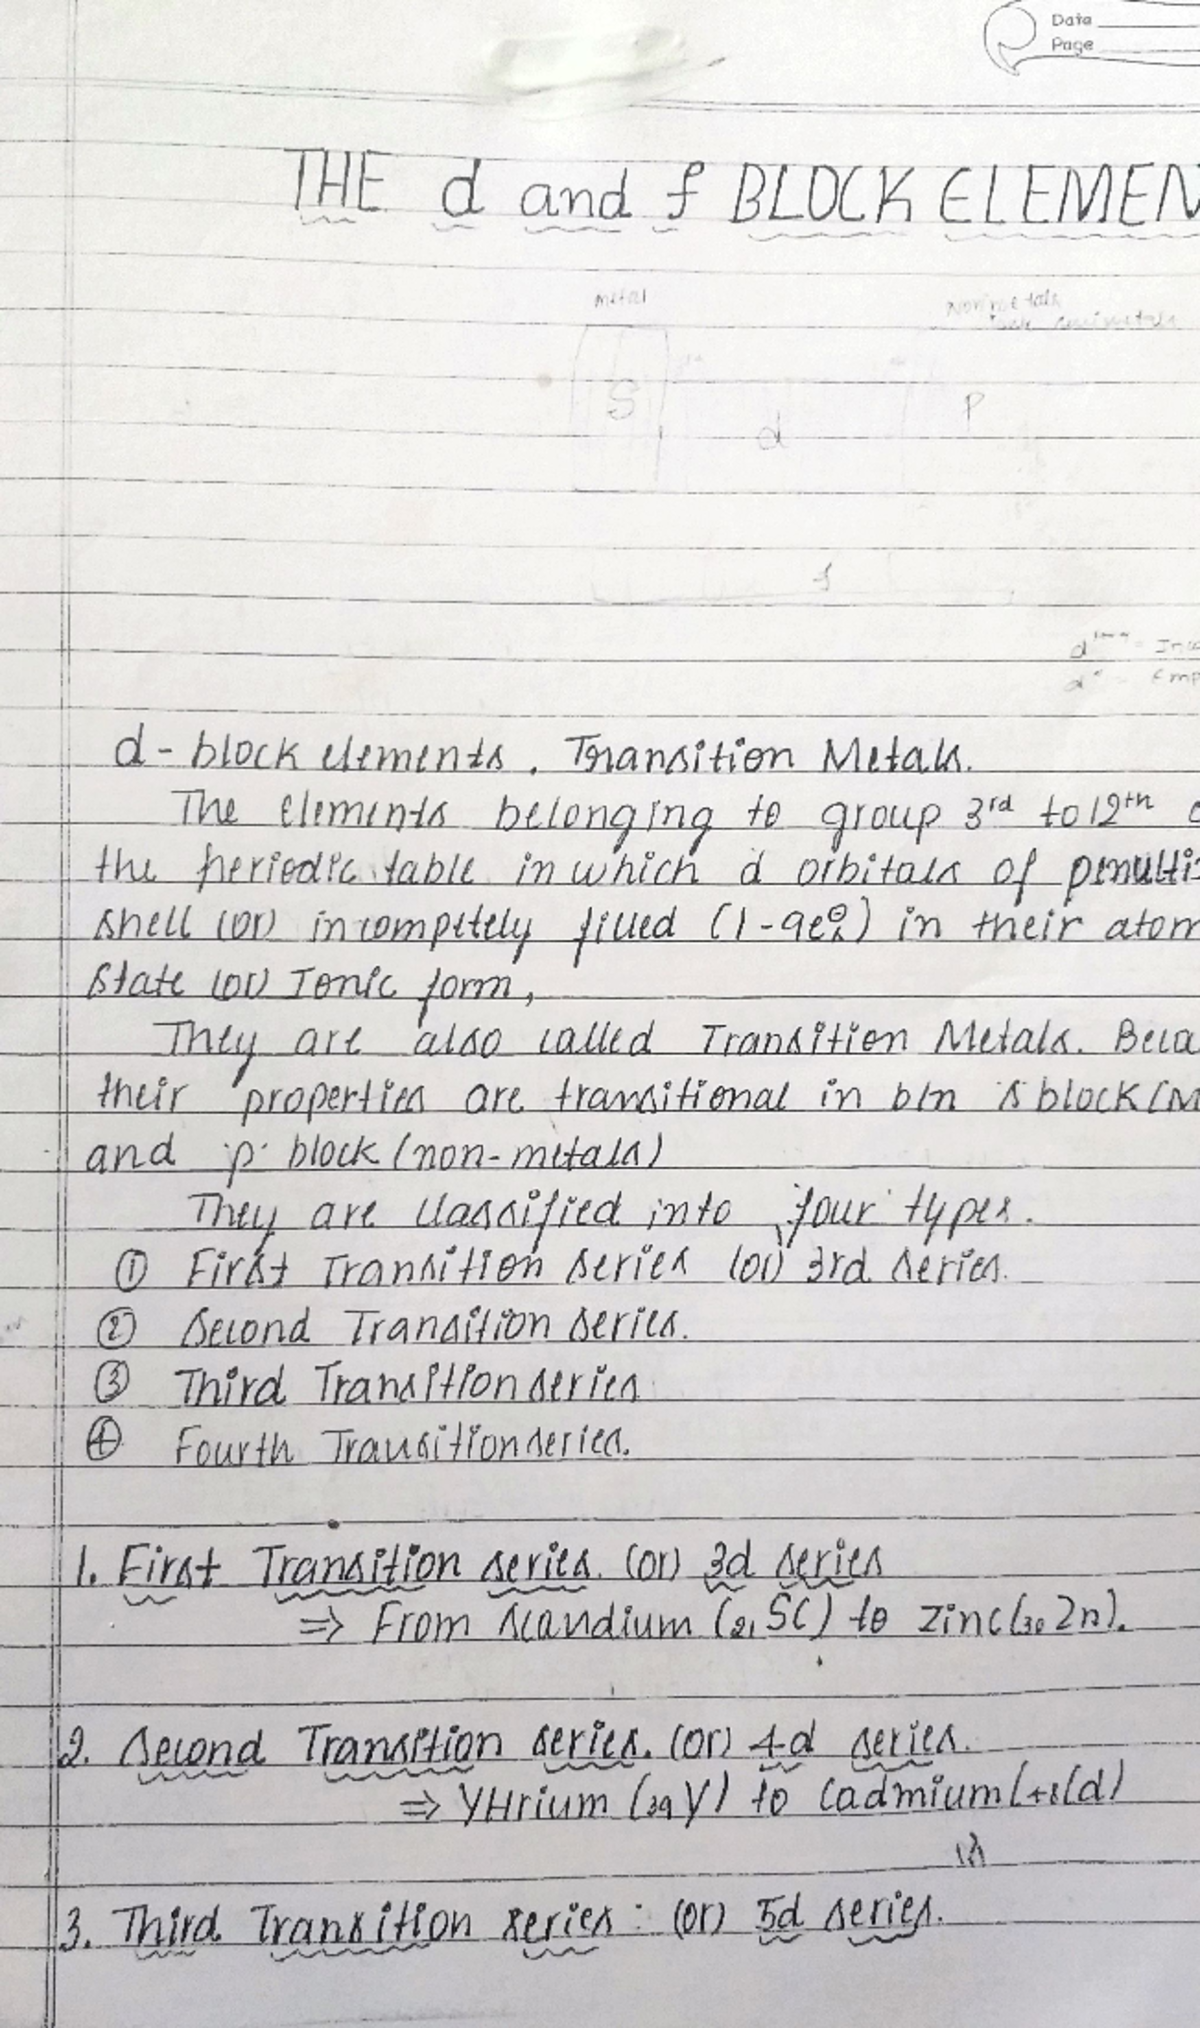 Date
Page
THE d and f BLOCK ELEMEN
metal
Nonmetals
S
d
P
f
d-block elements. Transition Metals.
The elements belonging to group 3rd to 12th
the periodic table in which d orbitals of penulti
shell (or) incompetely filled (1-9e⊖s) in their atom
state (or) Ionic form,
They are also called Transition Metals. Beca
their properties are transitional in b/n s block (M
and 'p' block (non-metals)
They are classified into four types.
① First Transition series (or) 3rd series.
② Second Transition series.
③ Third Transition series
④ Fourth Transition series.
1. First Transition series. (or) 3d series
⇒ From scandium (21 SC) to zinc (30 Zn).
2. Second Transition series. (or) 4d series.
⇒ Yttrium (39 Y) to Cadmium (48 Cd)
3. Third Transition series: (or) 5d series.